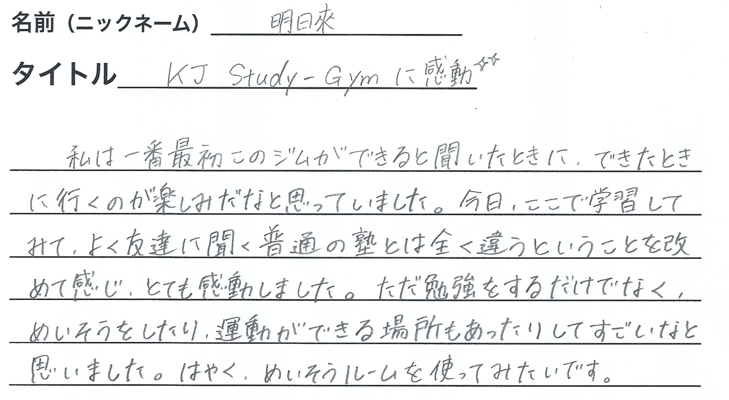 名前（ニックネーム） 明日來
タイトル KJ Study-Gymに感動☆☆
私は一番最初このジムができると聞いたときに、できたとき
に行くのが楽しみだなと思っていました。今日、ここで学習して
みて、よく友達に聞く普通の塾とは全く違うということを改
めて感じ、とても感動しました。ただ勉強をするだけでなく、
めいそうをしたり、運動ができる場所もあったりしてすごいなと
思いました。はやく、めいそうルームを使ってみたいです。